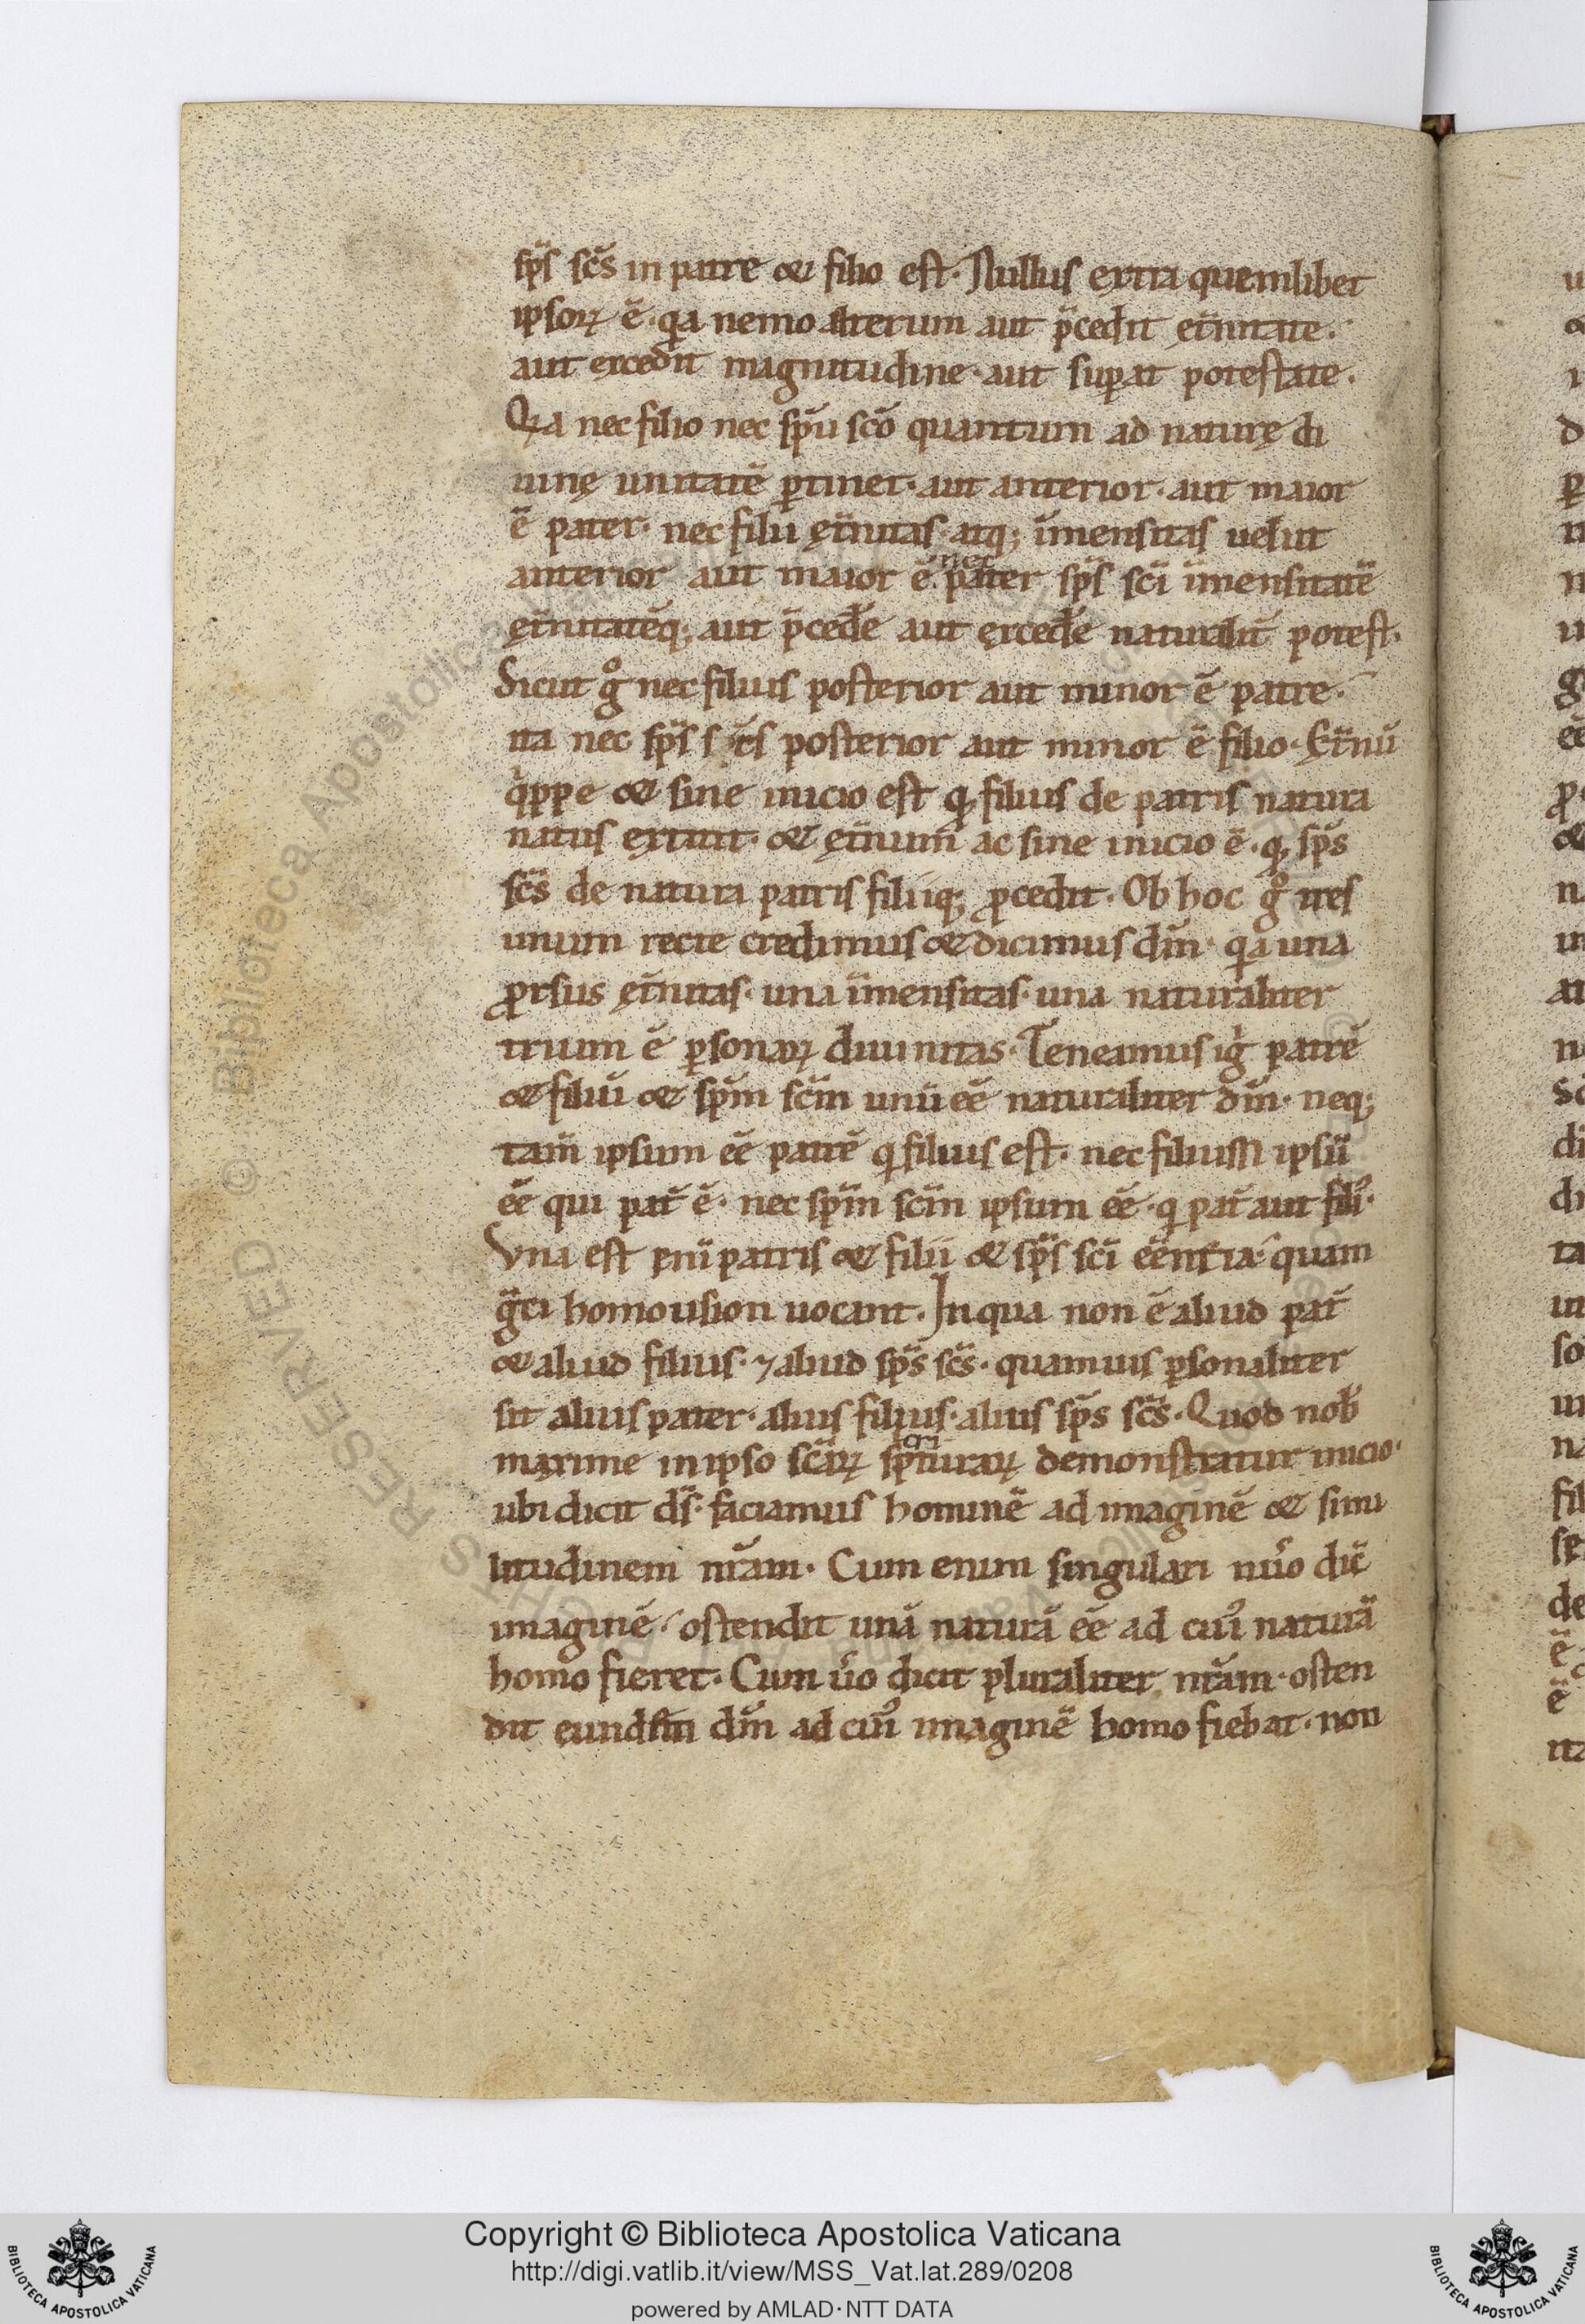 sp̄s sc̄s in patre & filio est. Nullus extra quemlibet
ipsoꝝ ē. qa nemo alterum aut p̄cedit et̄nitate.
aut excedit magnitudine. aut suꝑat potestate.
Qa nec filio nec sp̄u sc̄o quantum ad naturę di
uinę unitatē ꝑtinet. aut anterior. aut maior
ē pater. nec filii ęt̄nitas atq; īmensitas uelut
anterior aut maior ē. nec pater sp̄s sc̄i īmensitatē
ęt̄nitatēq; aut p̄cedēe aut ęxcedēe naturalit̄ potest.
Sicut gͦ nec filius posterior aut minor ē patre.
ita nec sp̄s sc̄s posterior aut minor ē filio. Et̄nū
qippe & sine inicio est qꝫ filius de patris natura
natus extitit. & ęt̄num ac sine inicio ē. qꝫ sp̄s
sc̄s de natura patris filiiq; ꝓcedit. Ob hoc gͦ tres
unum recte credimus & dicimus dm̄. qa una
ꝓrsus ęt̄nitas. una īmensitas. una naturaliter
trium ē ꝑsonaꝝ diuinitas. Teneamus igi patrē
& filiū & sp̄m sc̄m unū eē naturaliter dm̄. neq;
tam̄ ipsum eē patrē q filius est. nec filium ipsū
eē qui pat̄ ē. nec sp̄m sc̄m ipsum eē. q pat̄ aut fili᾿.
Vna est enī patris & filii & sp̄s sc̄i eēntia. quam
gēci homousion uocant. In qua non ē aliud pat̄
& aliud filius. ⁊ aliud sp̄s sc̄s. quamuis ꝑsonaliter
sit alius pater. alius filius. alius sp̄s sc̄s. Quod nob̄
maxime in ipso sc̄aꝝ scripturaꝝ demonstratur inicio.
ubi dicit ds̄. faciamus hominē ad imaginē & simi
litudinem nr̄am. Cum enim singulari nūo dic̄
imaginē. ostendit unā naturā eē ad cui᾿ naturā
homo fieret. Cum ūo dicit pluraliter nr̄am. osten
dit eundem dm̄ ad cui᾿ imaginē homo fiebat. non
Copyright © Biblioteca Apostolica Vaticana
http://digi.vatlib.it/view/MSS_Vat.lat.289/0208
powered by AMLAD·NTT DATA